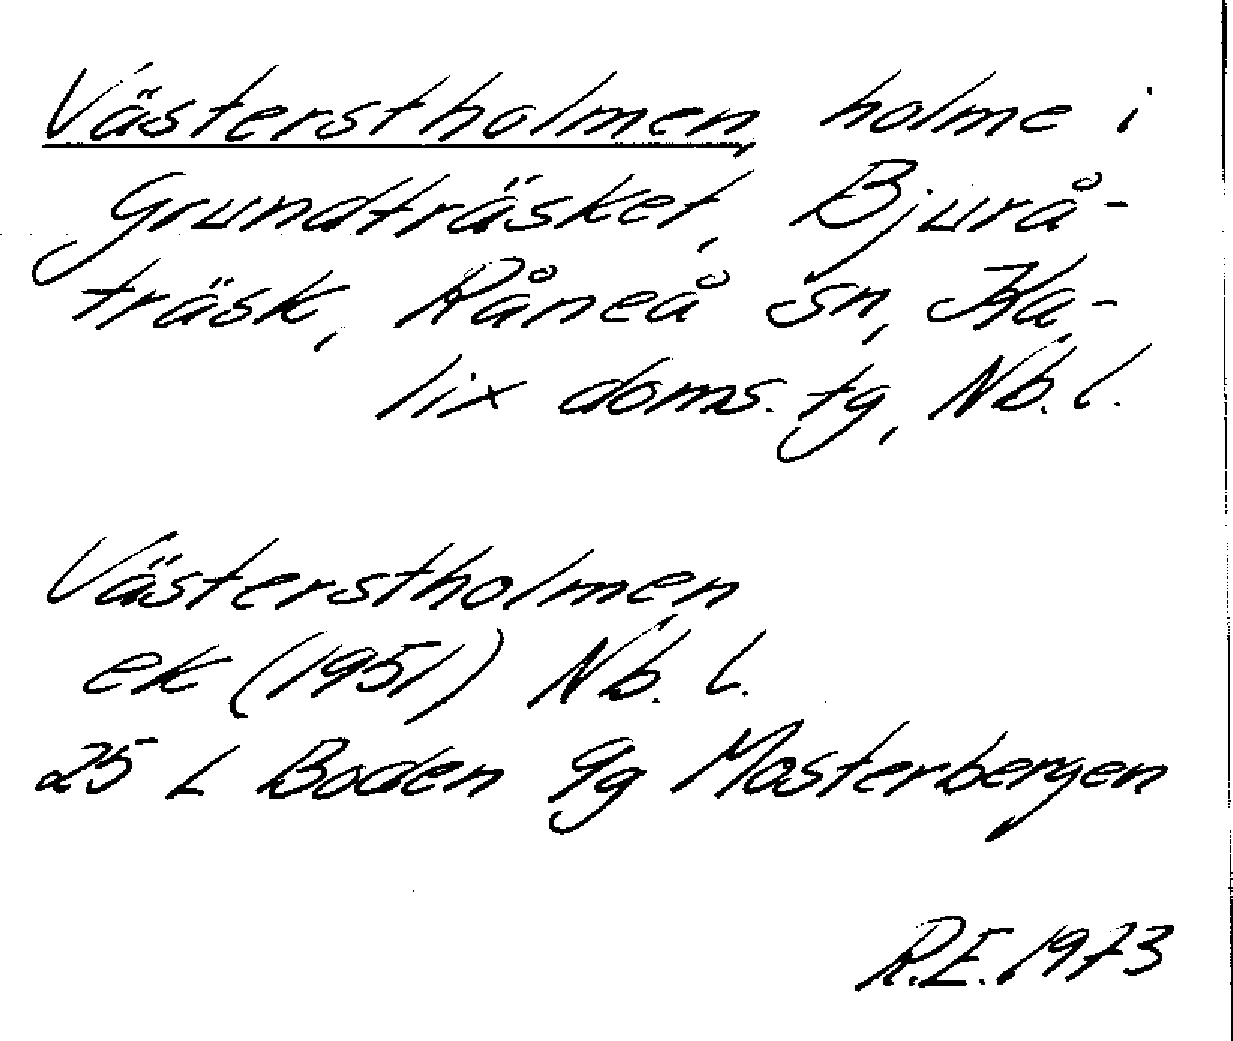 Västerstholmen, holme i
Grundträsket, Bjurå-
träsk, Råneå sn, Ka-
lix doms. tg, Nb. l.
Västerstholmen
ek (1951) Nb. l.
25 L Boden 9g Mosterbergen
R.E. 1973